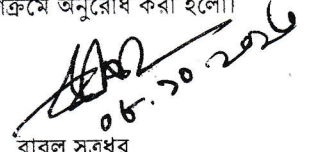 ক্রমে অনুরোধ করা হলো।
০৮.১০.২০২৬
বাবুল সূত্রধর